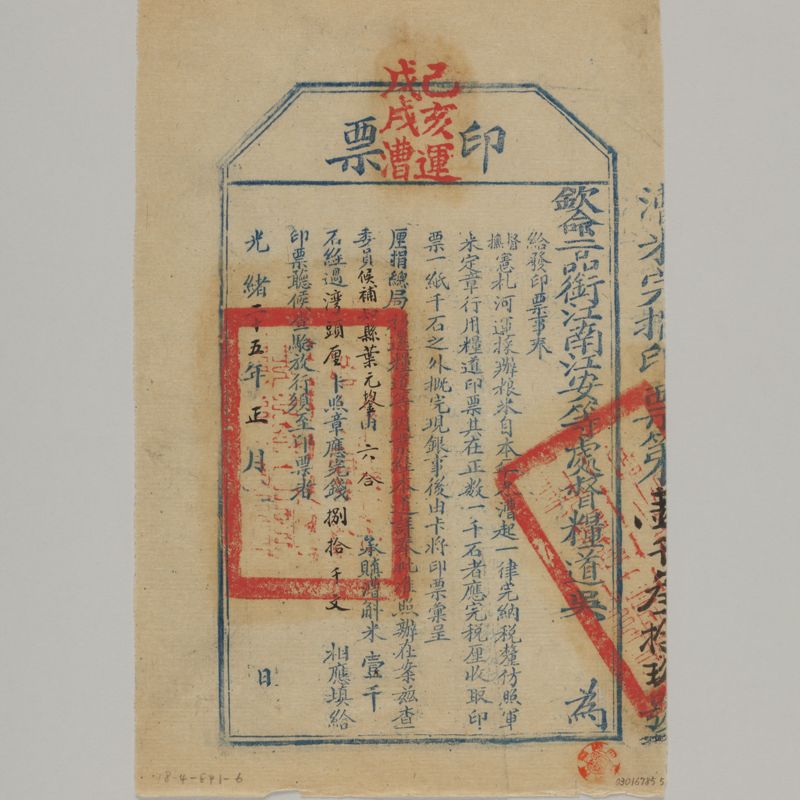 己亥運
戊戌漕
印票
漕米完捐印票第
欽命二品銜江南江安等處督糧道吳 為
給發印票事奉
督撫憲札河運採辦粮米自本年冬漕起一律完納稅釐仿照軍
米定章行用糧道印票其在正數一千石者應完稅厘收取印
票一紙千石之外概完現銀事後由卡將印票彙呈
厘捐總局 照辦在案茲查
委員候補知縣葉元鋆由六合 承購漕斛米壹千
石經過灣頭厘卡照章應完錢捌拾千文 相應填給
印票聽候查驗放行須至印票者
光緒二十五年正月 日
18-4-841-6
03016785 5